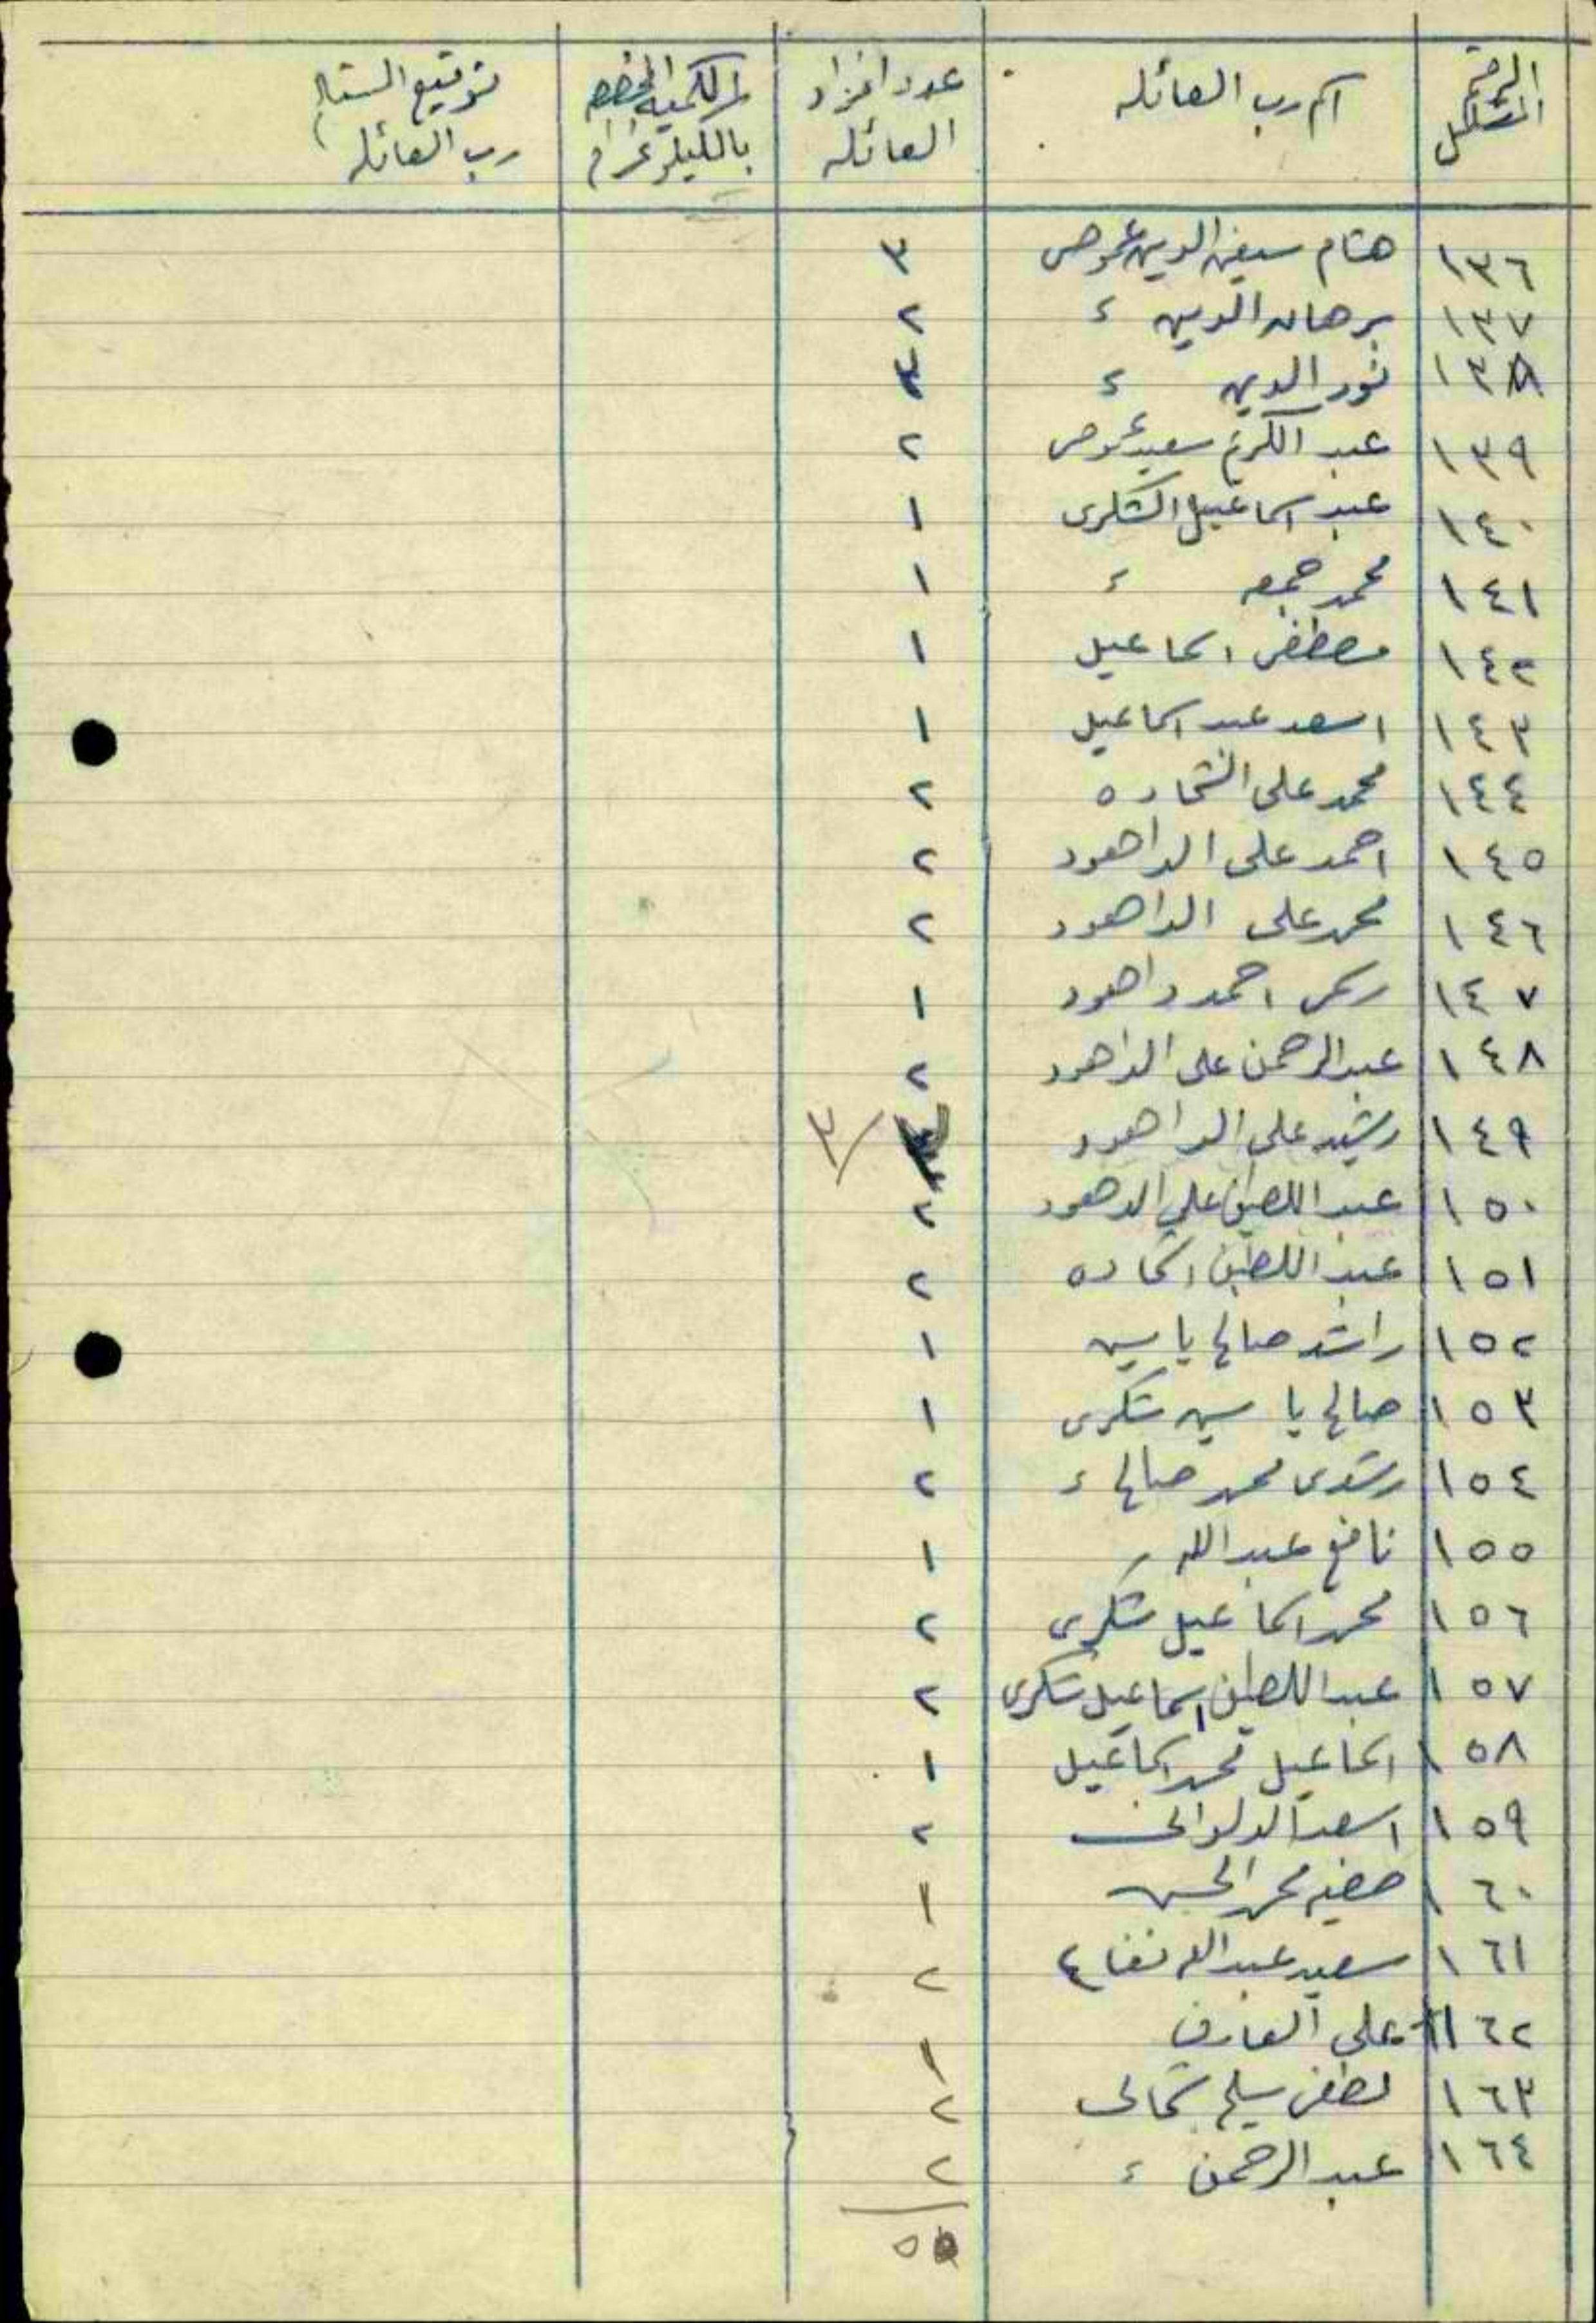 الرقم المتسلسل اسم رب العائله عدد افراد العائله الكمية المخصصه بالكيلو غرام توقيع السيد رب العائله
١٣٦ هشام سيف الدين عوض ٣
١٣٧ برهان الدين ء ٢
١٣٨ نور الدين ء
١٣٩ عبد الكريم سعيد عوض ٢
١٤٠ عبد اسماعيل الشكرى ١
١٤١ محمد جمعه ء ١
١٤٢ مصطفى اسماعيل ١
١٤٣ اسعد عبد اسماعيل ١
١٤٤ محمد على الشحاده ٢
١٤٥ احمد على الداهود ٢
١٤٦ محمد على الداهود ٢
١٤٧ احمد داهود ١
١٤٨ عبد الرحمن على الداهود ٢
١٤٩ رشيد على الداهود ٣
١٥٠ عبد اللطيف علي الدهود ٢
١٥١ عبد اللطيف شحاده ٢
١٥٢ راشد صالح ياسين ١
١٥٣ صالح ياسين شكرى ١
١٥٤ رشدى محمد صالح ء ٢
١٥٥ نافع عبد الله ء ١
١٥٦ محمد اسماعيل شكرى ٢
١٥٧ عبد اللطيف اسماعيل شكرى ٢
١٥٨ اسماعيل محمد اسماعيل ١
١٥٩ اسعد ٢
١٦٠ محمد الحسن ١
١٦١ سعيد عبد الله نفاع ٢
١٦٢ على العارف ١
١٦٣ لطفى سليم ٢
١٦٤ عبد الرحمن ء ٢